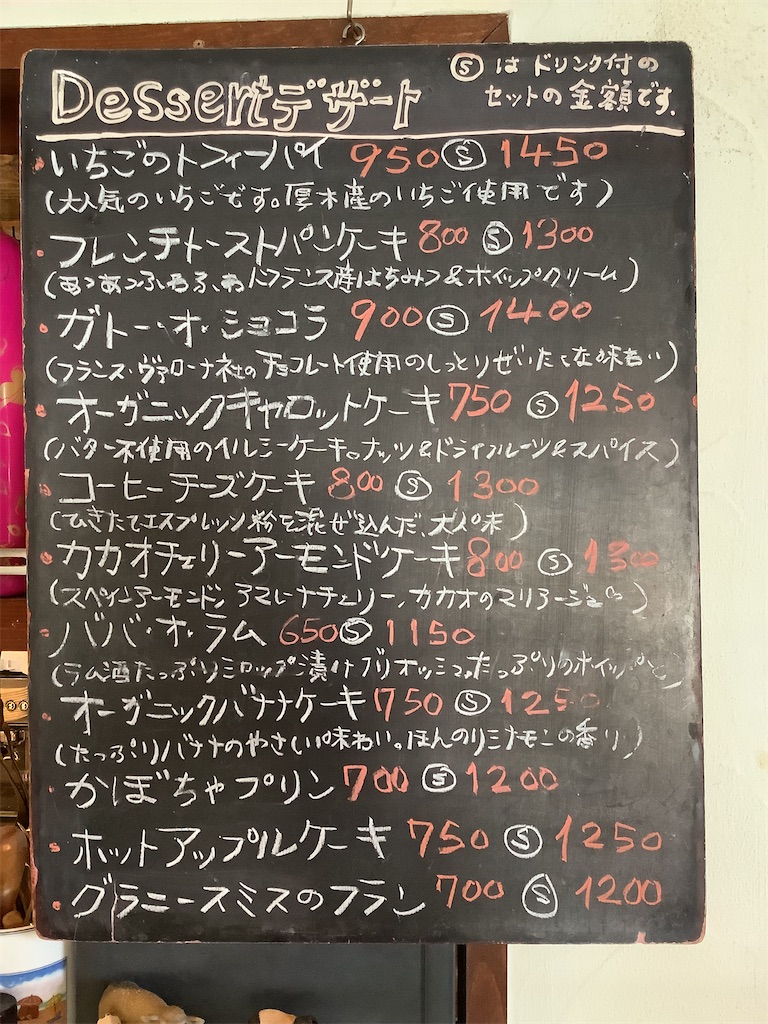 Dessertデザート
Ⓢ は ドリンク付の
セットの金額です.
・いちごのトフィーパイ 950 Ⓢ 1450
(大人気のいちごです。厚木産のいちご使用です)
・フレンチトーストパンケーキ 800 Ⓢ 1300
(あつあつふわふわにフランス産はちみつ&ホイップクリーム)
・ガトー・オ・ショコラ 900 Ⓢ 1400
(フランス・ヴァローナ社のチョコレート使用のしっとりぜいたくな味わい)
・オーガニックキャロットケーキ 750 Ⓢ 1250
(バター不使用のヘルシーケーキ。ナッツ&ドライフルーツ&スパイス)
・コーヒーチーズケーキ 800 Ⓢ 1300
(ひきたてエスプレッソ粉を混ぜ込んだ、大人味)
・カカオチェリーアーモンドケーキ 800 Ⓢ 1300
(スペインアーモンド,アマレーナチェリー,カカオのマリアージュ)
・ババ・オ・ラム 650 Ⓢ 1150
(ラム酒たっぷりシロップ漬けブリオッシュ。たっぷりのホイップと)
・オーガニックバナナケーキ 750 Ⓢ 1250
(たっぷりバナナのやさしい味わい。ほんのりシナモンの香り)
・かぼちゃプリン 700 Ⓢ 1200
・ホットアップルケーキ 750 Ⓢ 1250
・グラニースミスのフラン 700 Ⓢ 1200